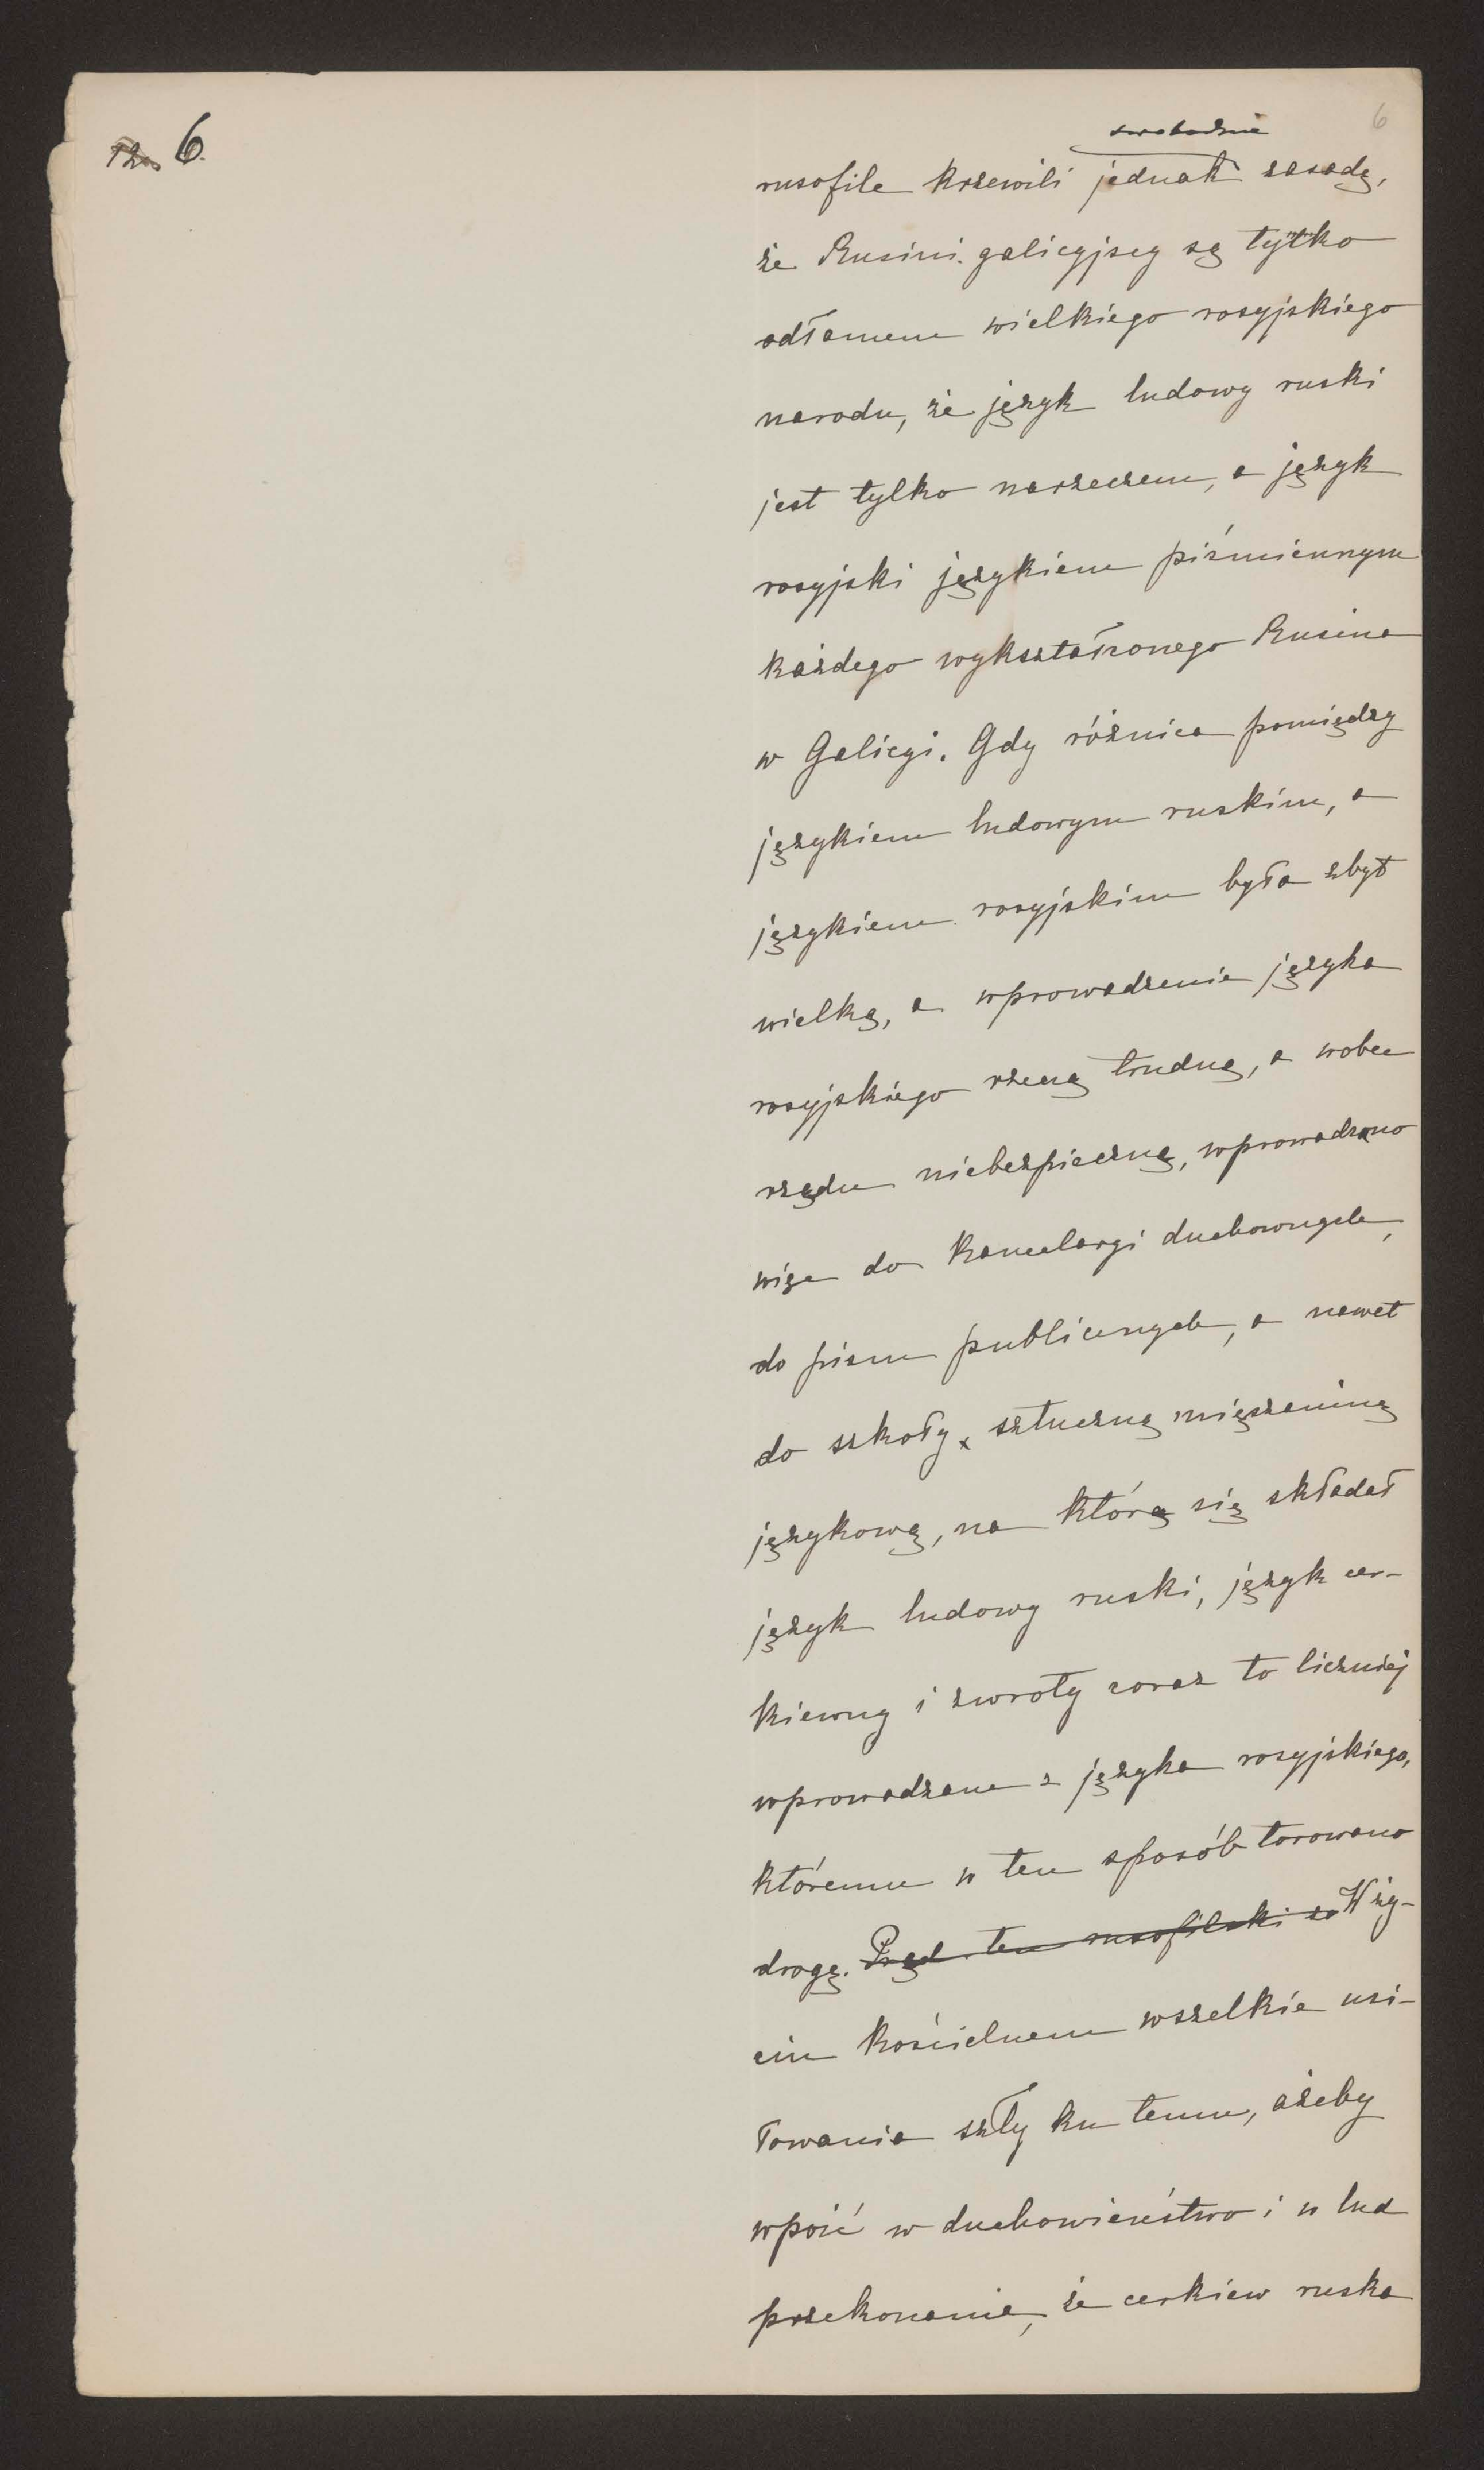 6.
6
swobodnie
rusofile krzewili jednak zasadę,
że Rusini galicyjscy są tylko
odłamem wielkiego rosyjskiego
narodu, że język ludowy ruski
jest tylko narzeczem, a język
rosyjski językiem piśmiennym
każdego wykształconego Rusina
w Galicyi. Gdy różnica pomiędzy
językiem ludowym ruskim, a
językiem rosyjskim była zbyt
wielką, a wprowadzenie języka
rosyjskiego rzeczą trudną, a wobec
rządu niebezpieczną, wprowadzono
więc do kancelaryi duchownych,
do pism publicznych, a nawet
do szkoły sztuczną mięszaninę
językową, na którą się składał
język ludowy ruski, język cer-
kiewny i zwroty coraz to liczniej
wprowadzane z języka rosyjskiego,
któremu w ten sposób torowano
drogę. Prąd ten rusofilski za W ży-
ciu kościelnem wszelkie usi-
łowania szły ku temu, ażeby
wpoić w duchowieństwo i w lud
przekonanie, że cerkiew ruska